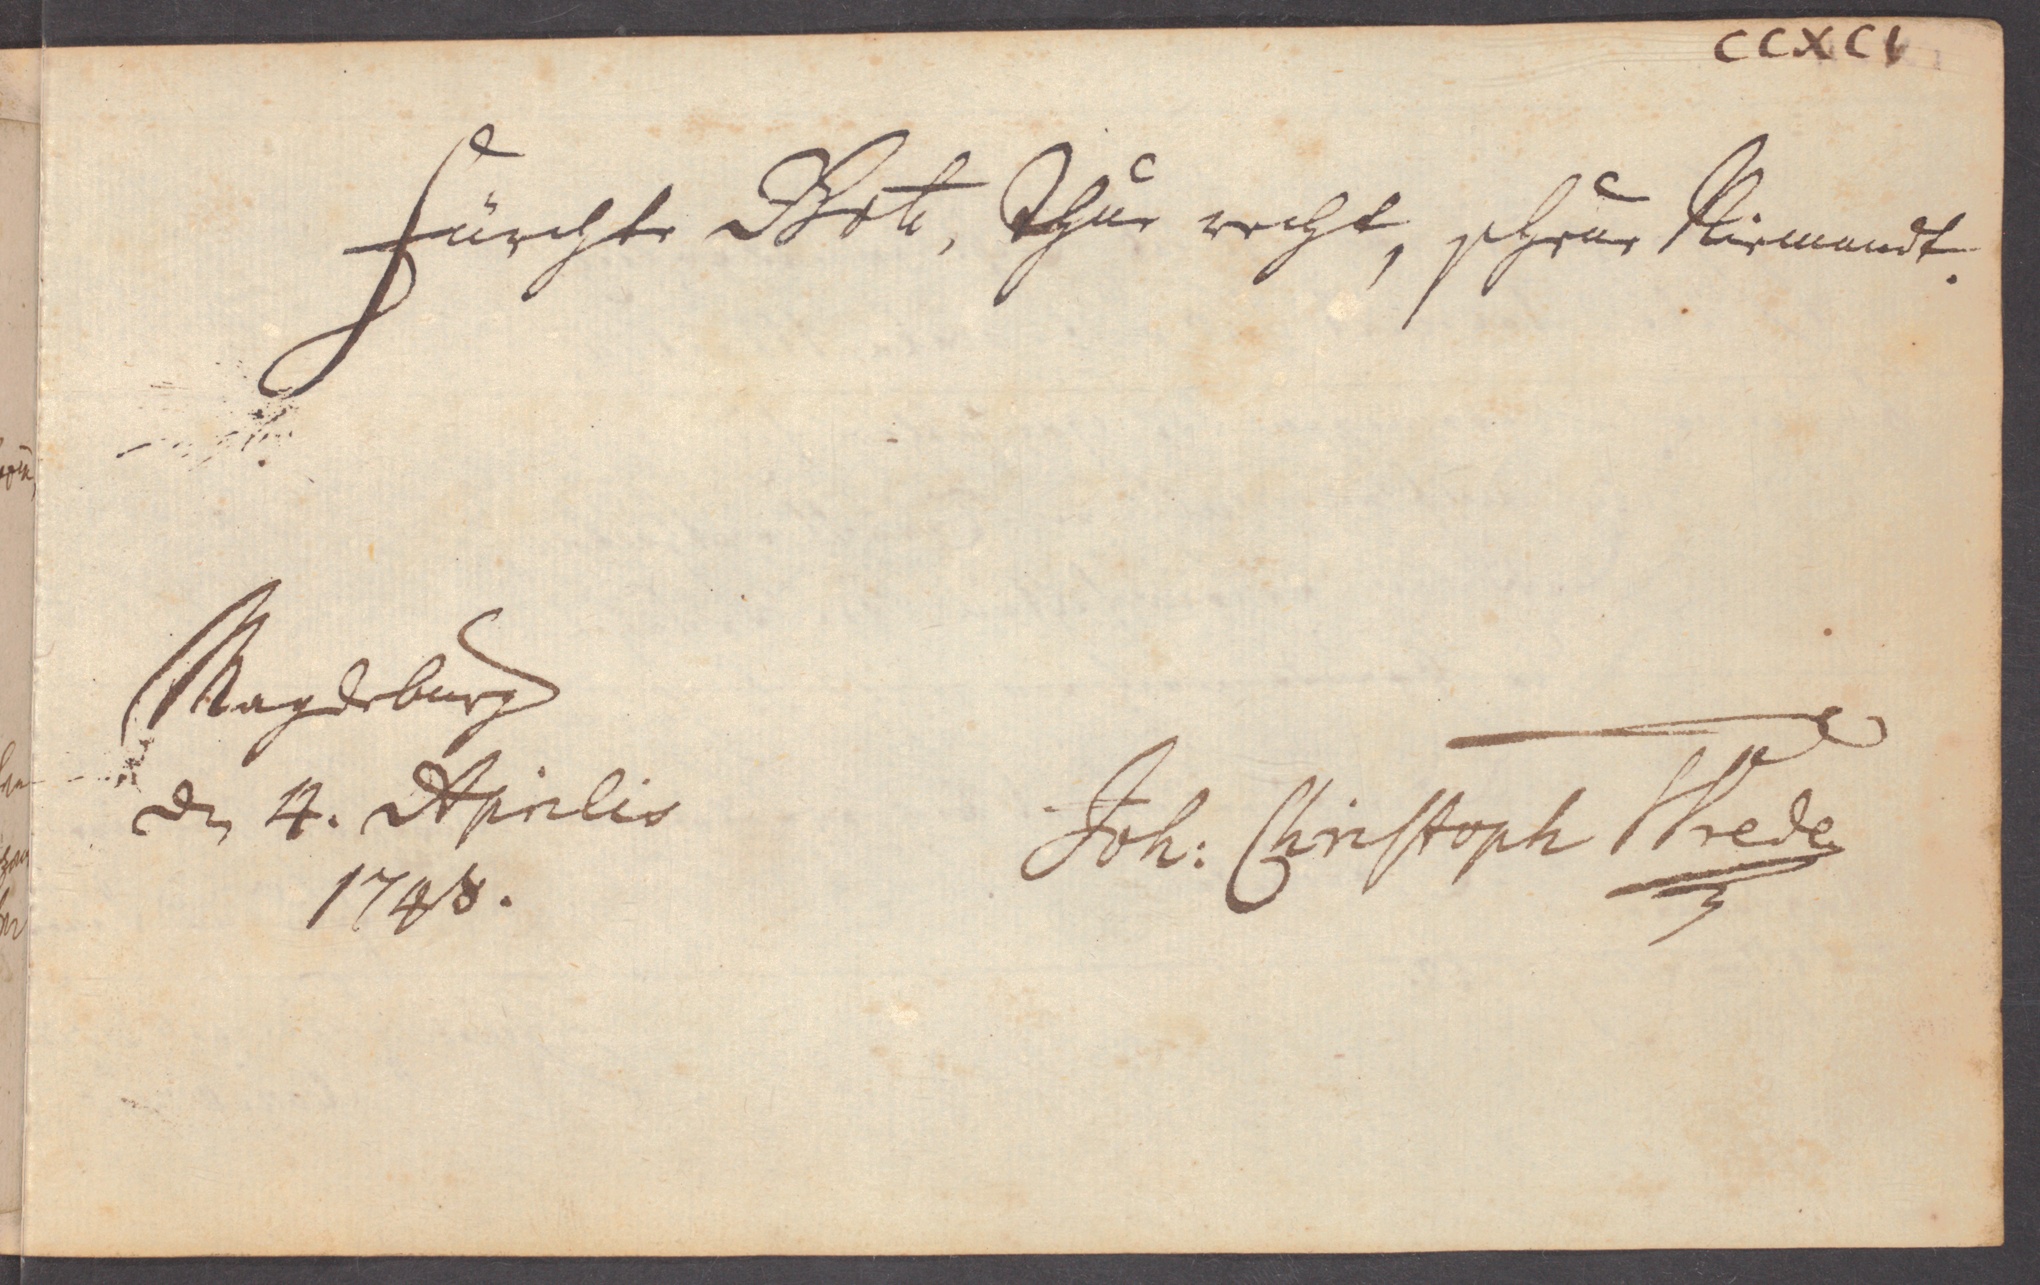 CCXCI
Fürchte Gott, Thue recht, scheue Niemandt.
Magdeburg
den 4. Aprilis
1748.
Joh: Christoph Wrede